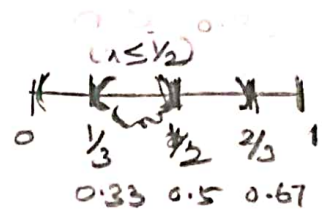 (x ≤ 1/2)
0 1/3 1/2 2/3 1
0.33 0.5 0.67